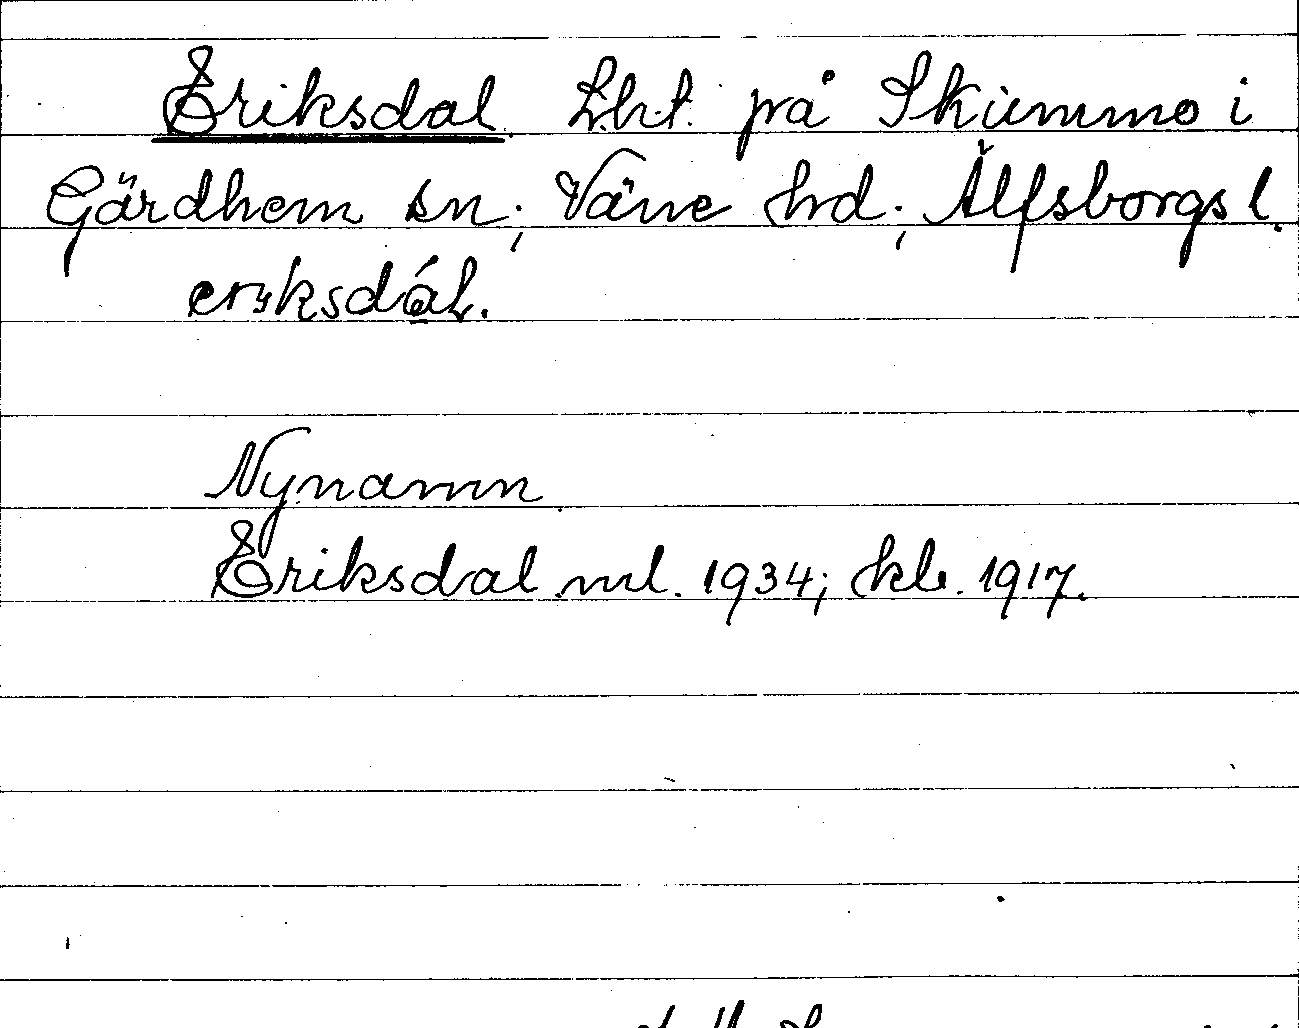 Eriksdal. Lht. på Skümmo i
Gärdhem sn; Väne hrd; Älfsborgs l.
Nynamn
Eriksdal ml. 1934; kb. 1917.